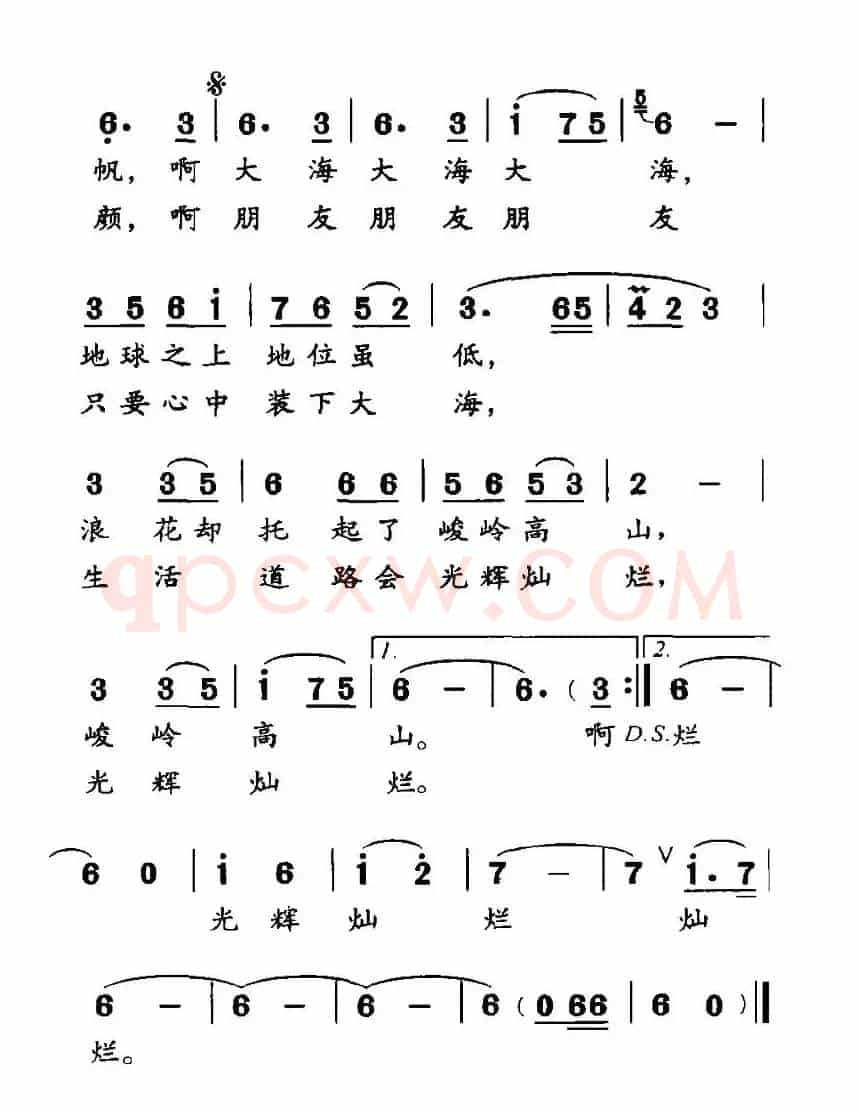 6. 3 | 6. 3 | 6. 3 | i 75 | 5 6 - |
帆, 啊 大 海 大 海 大 海,
颜, 啊 朋 友 朋 友 朋 友
3 5 6 i | 7 6 5 2 | 3. 65 | 4 2 3 |
地 球 之 上 地 位 虽 低,
只 要 心 中 装 下 大 海,
3 3 5 | 6 6 6 | 5 6 5 3 | 2 - |
浪 花 却 托 起 了 峻 岭 高 山,
生 活 道 路 会 光 辉 灿 烂,
qpcxw.COM
1. 2.
3 3 5 | i 7 5 | 6 - | 6. ( 3 :| 6 - |
峻 岭 高 山。 啊 D.S. 烂
光 辉 灿 烂。
6 0 | i 6 | i 2 | 7 - | 7 V i. 7 |
光 辉 灿 烂 灿
6 - | 6 - | 6 - | 6 ( 0 66 | 6 0 ) ||
烂。